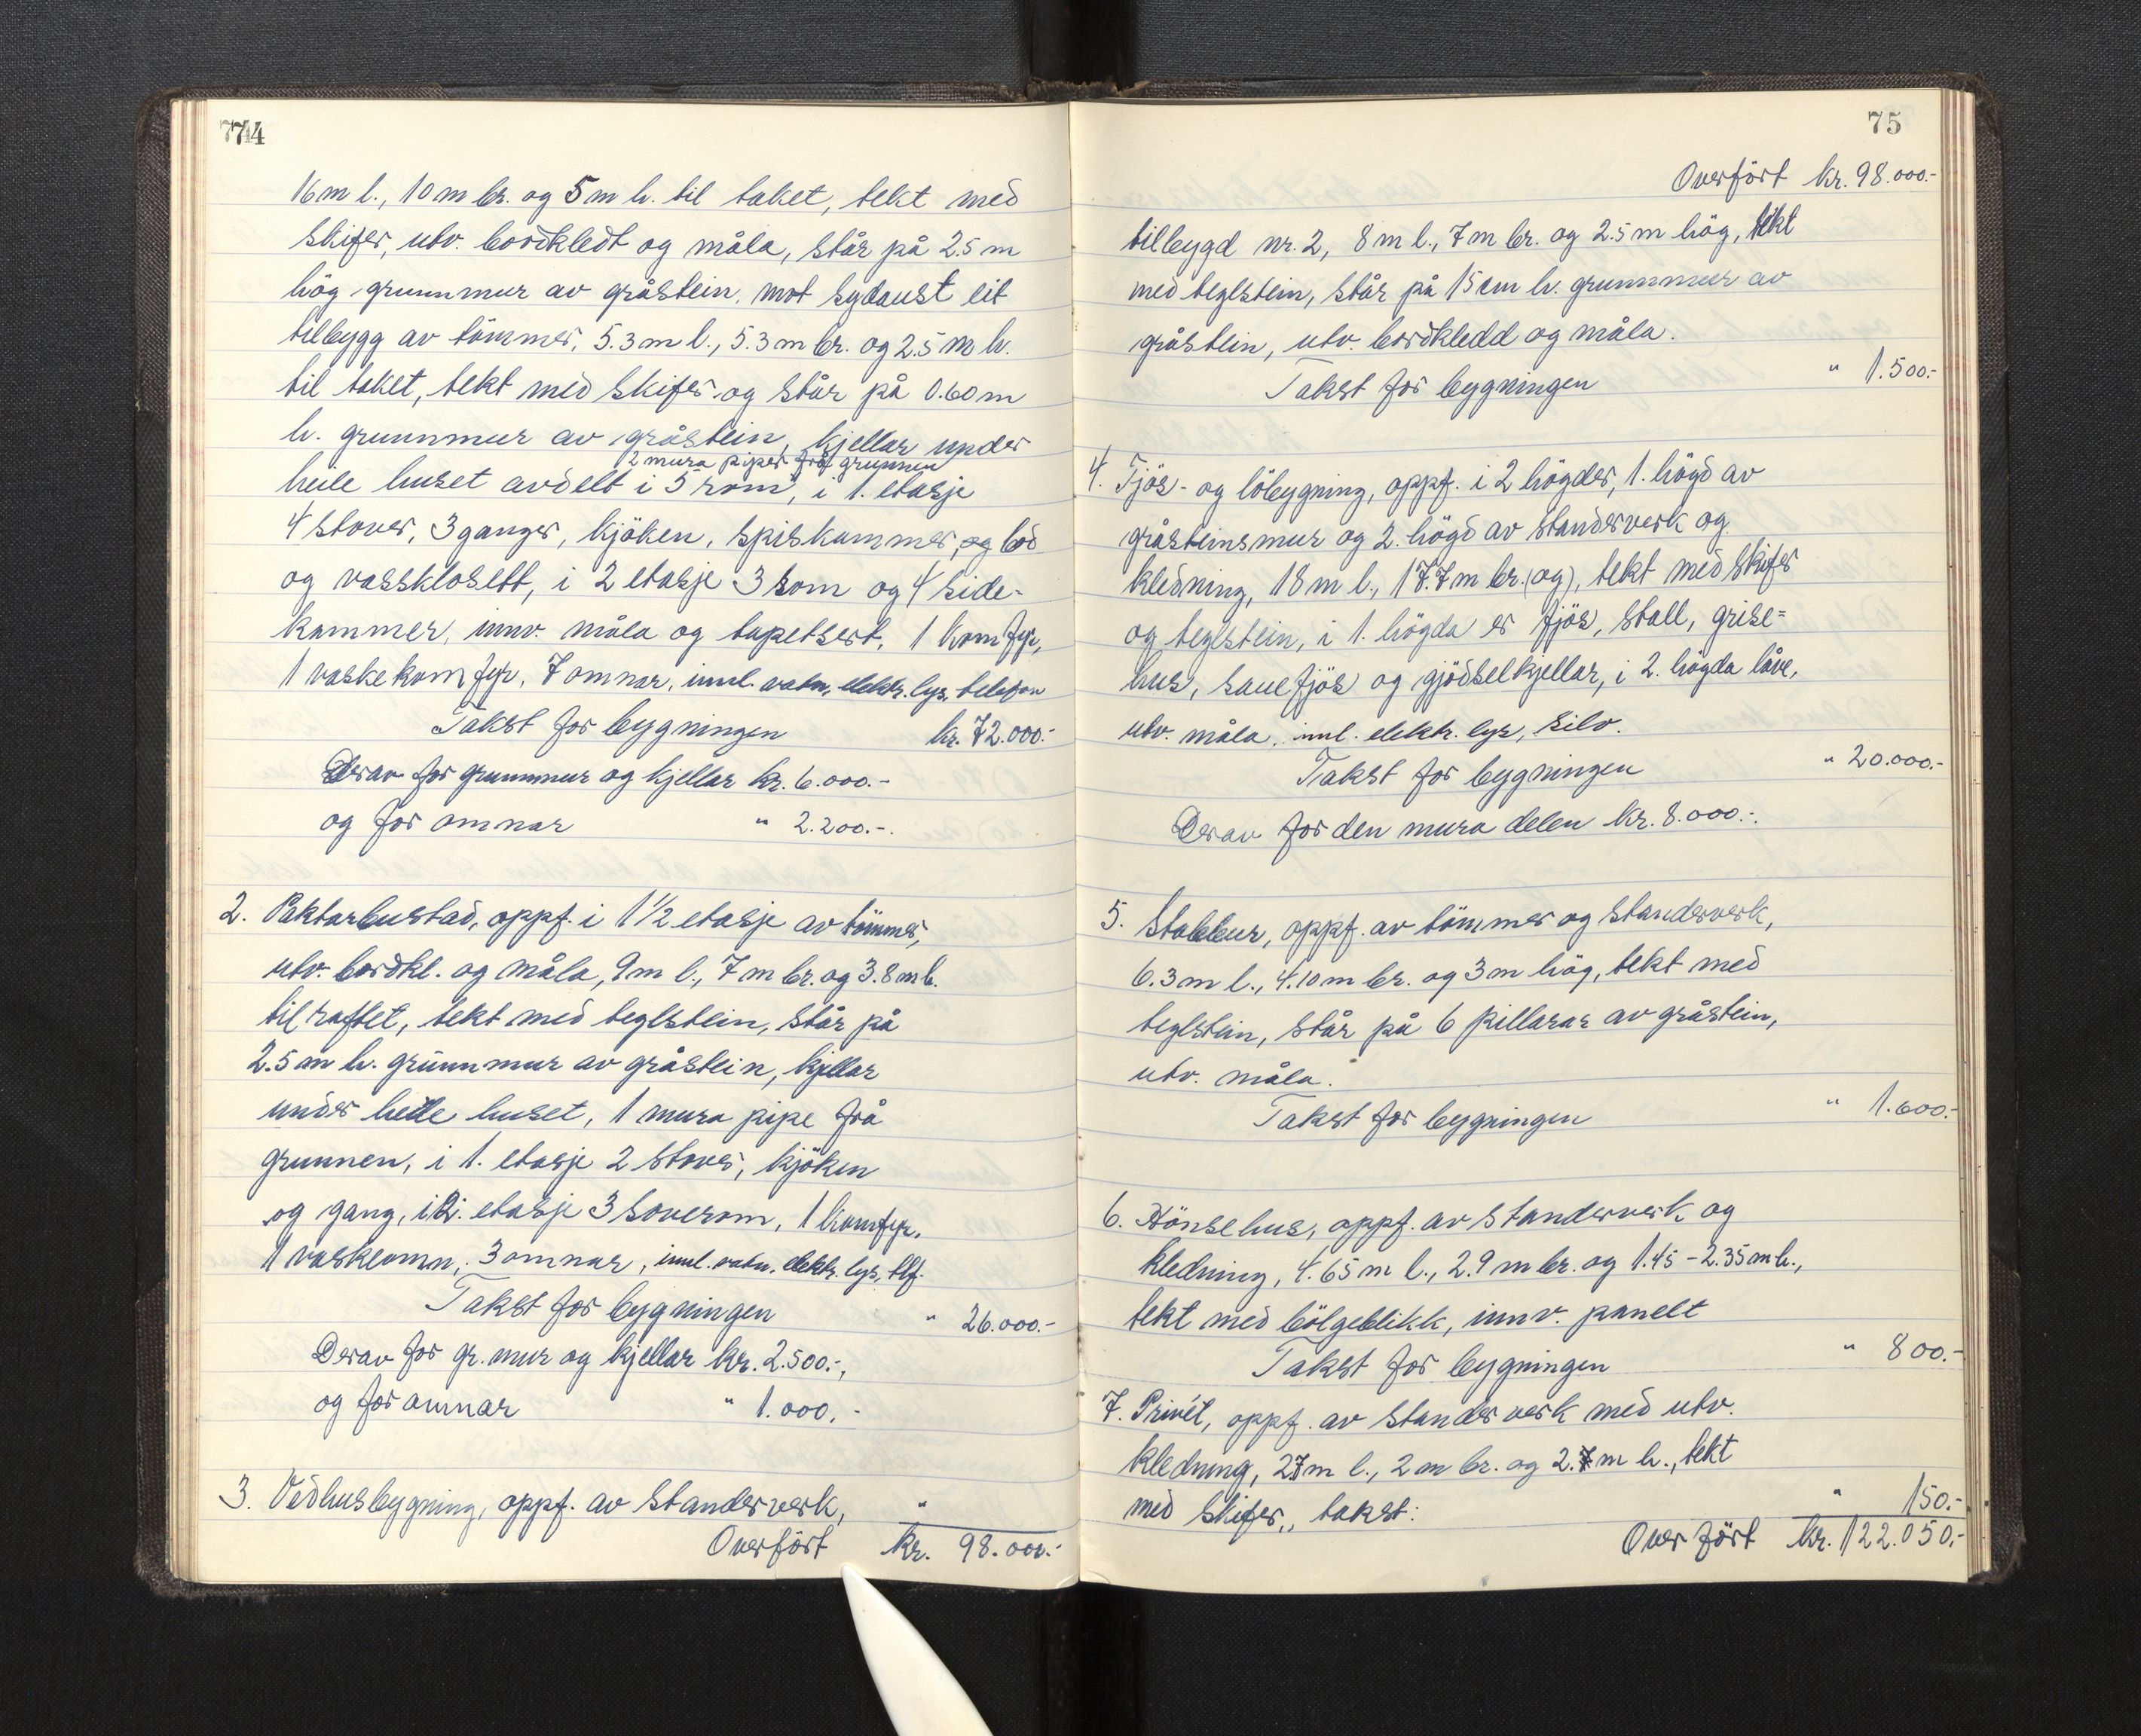 774
16 m l., 10 m br. og 5 m h. til taket, tekt med
skifer, utv. bordkledt og måla, står på 2.5 m
hög grunnmur av gråstein. mot sydaust eit
tilbygg av tömmer, 5.3 m l., 5.3 m br. og 2.5 m h.
til taket, tekt med skifer og står på 0.60 m
h. grunnmur av gråstein, kjellar under
2 mura piper frå grunnen
heile huset avdelt i 5 rom, i 1. etasje
4 stover, 3 ganger, kjöken, spiskammer, og bod
og vassklosett, i 2 etasje 3 rom og 4 side-
kammer, innv. måla og tapetsert, 1 komfyr,
1 vaskekomfyr, 7 omnar, innl. vatn, elektr. lys, telefon
Takst for bygningen kr. 72.000.-
Derav for grunnmur og kjellar kr. 6.000.-
og for omnar " 2.200.-.
2. Paktarbustad, oppf. i 1 1/2 etasje av tömmer,
utv. bordkl. og måla, 9 m l., 7 m br. og 3.8 m h.
til raftet, tekt med teglstein, står på
2.5 m h. grunnmur av gråstein, kjellar
under heile huset, 1 mura pipe frå
grunnen, i 1. etasje 2 stover, kjöken
og gang, i 2. etasje 3 soverom, 1 komfyr,
1 vaskeomn, 3 omnar, innl. vatn, elektr. lys, tlf.
Takst for bygningen " 26.000.-
Derav for gr. mur og kjellar kr. 2.500.-,
og for omnar " 1.000.-
3. Vedhusbygning, oppf. av standerverk, "
Overfört kr. 98.000.-
75
Overfört kr. 98.000.-
tilbygd nr. 2, 8 m l., 7 m br. og 2.5 m hög, tekt
med teglstein, står på 15 cm h. grunnmur av
gråstein, utv. bordkledd og måla.
Takst for bygningen " 1.500.-
4. Fjös- og löbygning, oppf. i 2 högder, 1. högd av
gråsteinsmur og 2. högd av standerverk og
kledning, 18 m l., 17.7 m br. (og), tekt med skifer
og teglstein, i 1. högda er fjös, stall, grise-
hus, sauefjös og gjödselkjellar, i 2. högda låve,
utv. måla, innl. elektr. lys, silo.
Takst for bygningen " 20.000.-
Derav for den mura delen kr. 8.000.-.
5. Stabbur, oppf. av tömmer og standerverk,
6.3 m l., 4.10 m br. og 3 m hög, tekt med
teglstein, står på 6 pillarar av gråstein,
utv. måla.
Takst for bygningen " 1.600.-
6. Hönsehus, oppf. av standerverk og
kledning, 4.65 m l., 2.9 m br. og 1.45 - 2.35 m h.,
tekt med bölgeblikk, innv. panelt
Takst for bygningen " 800.-
7. Privét, oppf. av standerverk med utv.
kledning, 27 m l., 2 m br. og 2.7 m h., tekt
med skifer,, takst: " 150.-
Overfört kr. 122.050.-